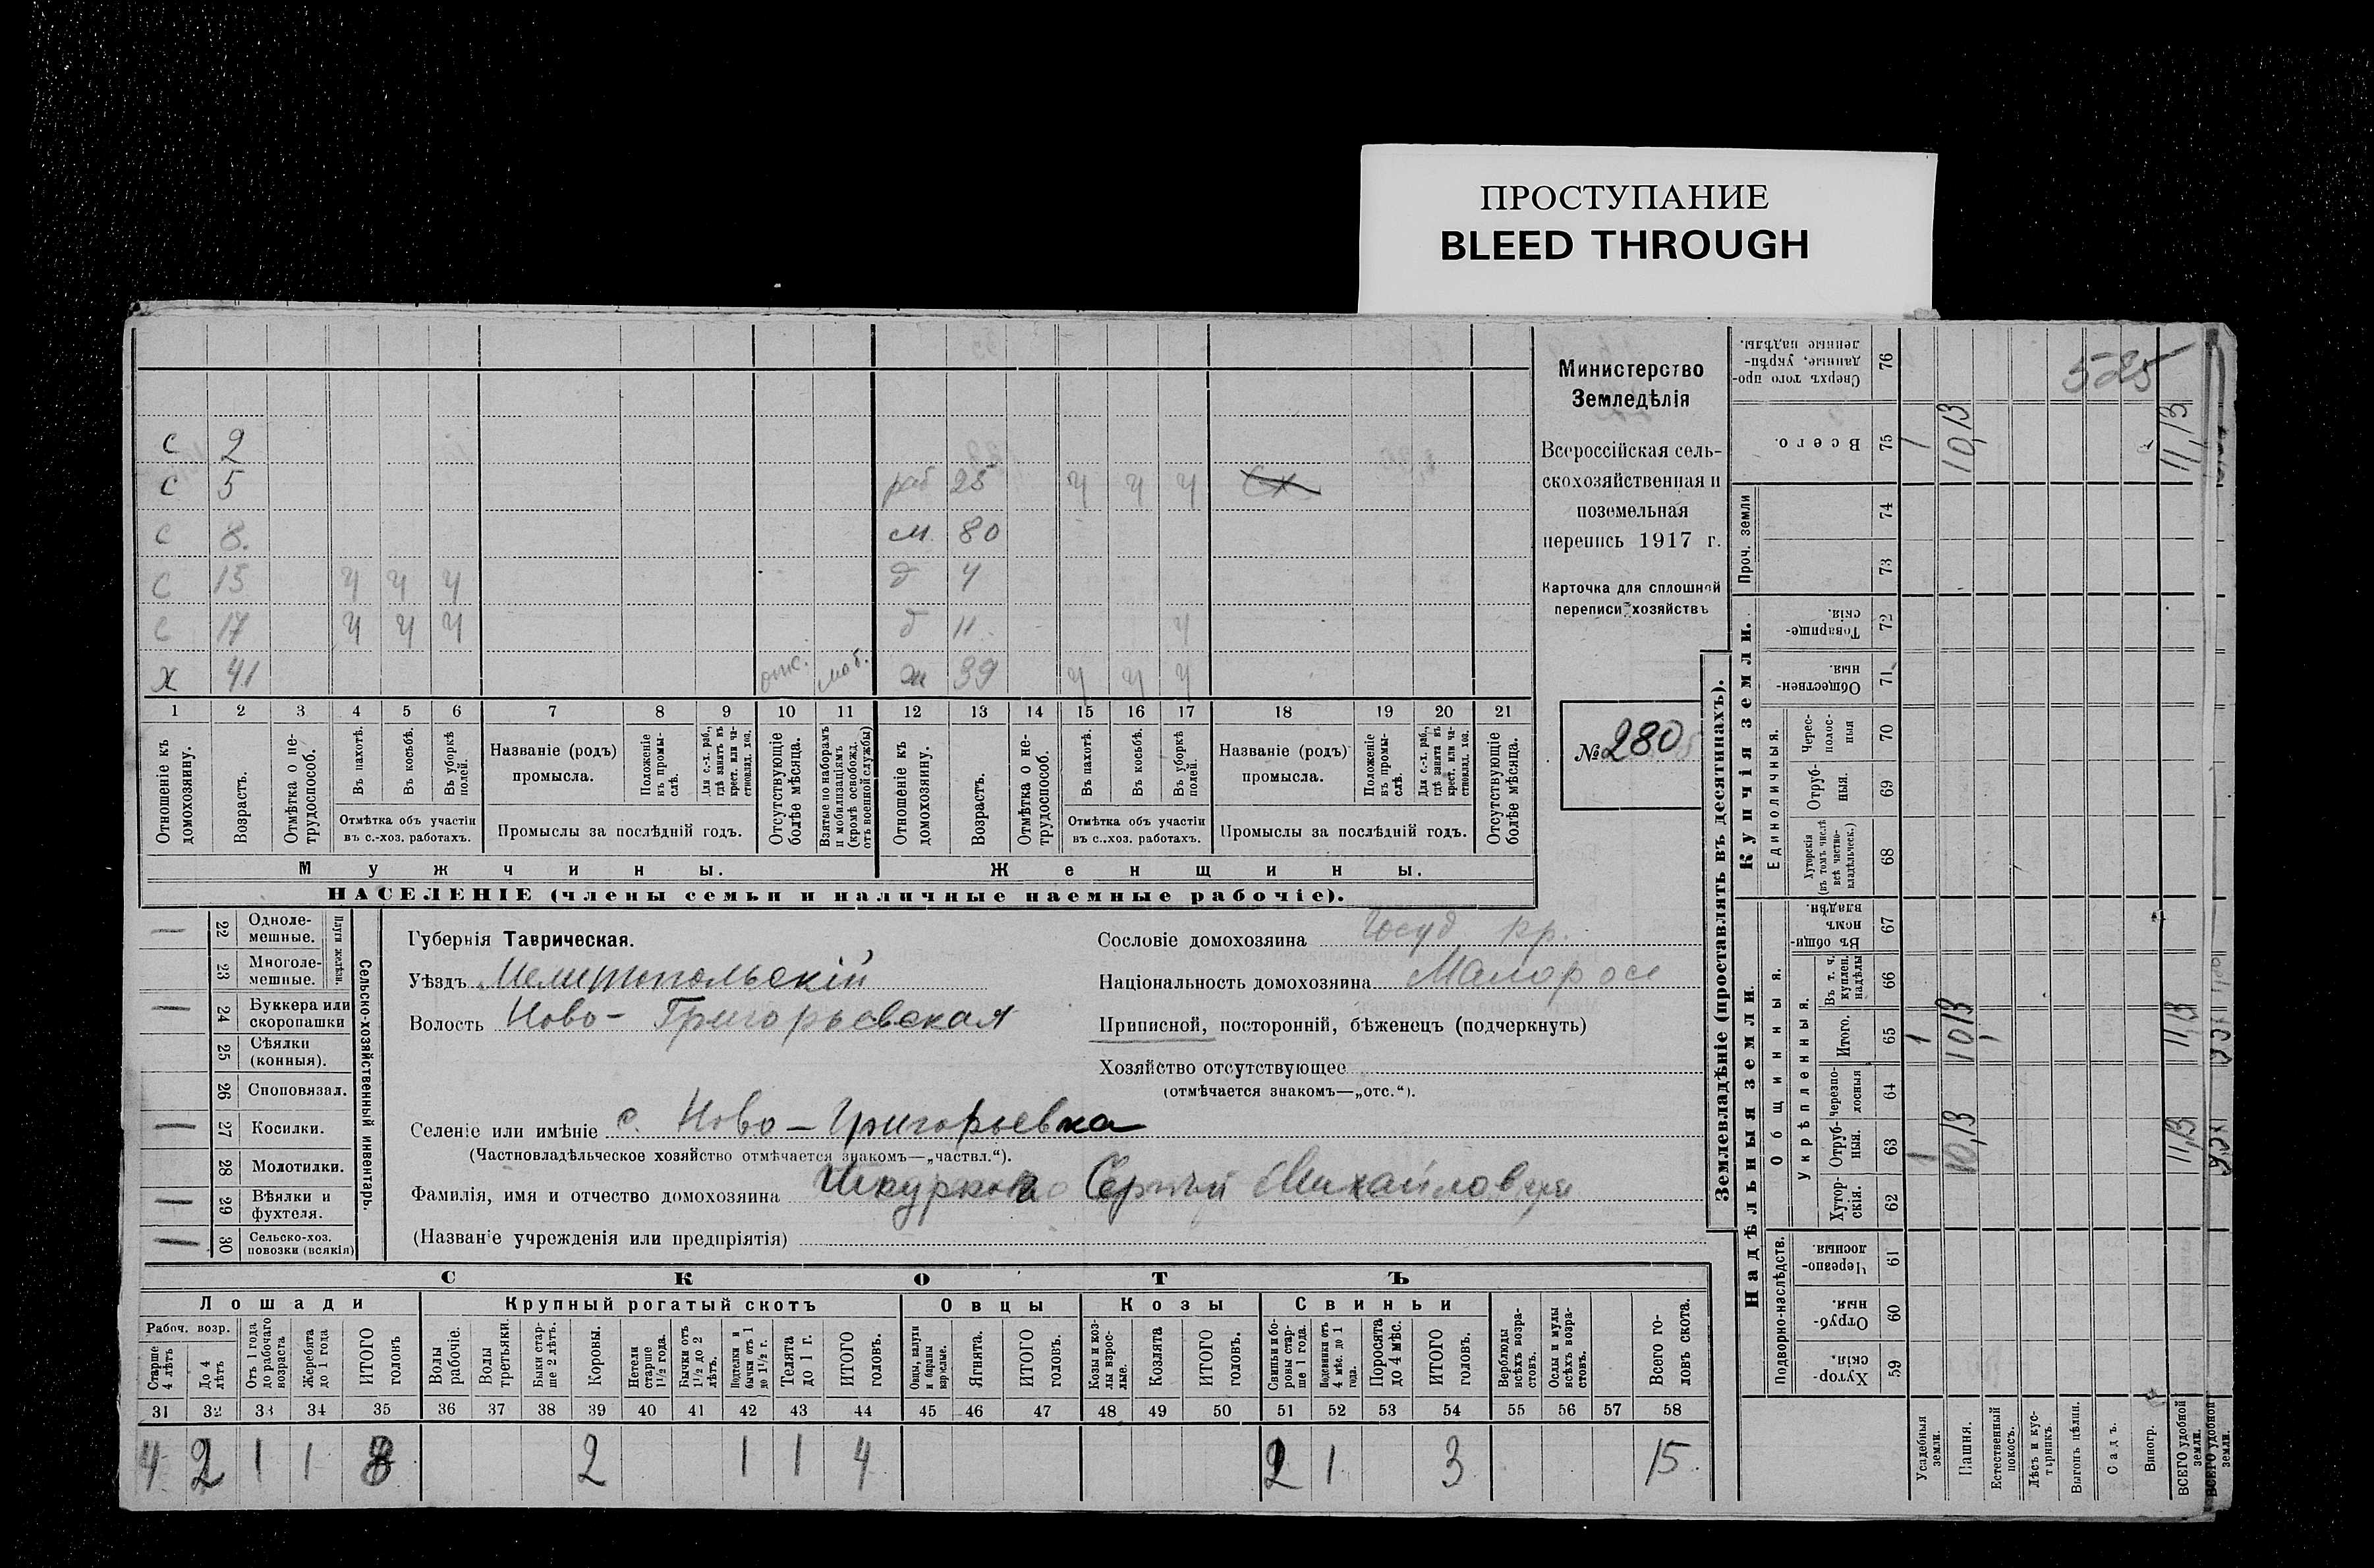 ПРОСТУПАНИЕ
BLEED THROUGH
Министерство
Земледѣлія
Всероссійская сель-
скохозяйственная и
поземельная
перепись 1917 г.
Карточка для сплошной
переписи хозяйствъ
№ 280
525
с 2
с 5 раб 25 ч ч ч Сх
с 8. м. 80
с 15 ч ч ч д 4
с 17 ч ч ч д 11. ч
х 41 отс. моб. ж 39 ч ч ч
1 2 3 4 5 6 7 8 9 10 11 12 13 14 15 16 17 18 19 20 21
Отношеніе къ домохозяину.
Возрастъ.
Отмѣтка о не-трудоспособ.
Въ пахотѣ.
Въ косьбѣ.
Въ уборкѣ полей.
Отмѣтка объ участіи въ с.-хоз. работахъ.
Названіе (родъ) промысла.
Положеніе въ промы-слѣ.
Для с.-х. раб., гдѣ занятъ въ крест. или ча-стновлад. хоз.
Промыслы за послѣдній годъ.
Отсутствующіе болѣе мѣсяца.
Взятые по наборамъ и мобилизаціямъ (кромѣ освобожд. отъ военной службы)
Отношеніе къ домохозяину.
Возрастъ.
Отмѣтка о не-трудоспособ.
Въ пахотѣ.
Въ косьбѣ.
Въ уборкѣ полей.
Отмѣтка объ участіи въ с.-хоз. работахъ.
Названіе (родъ) промысла.
Положеніе въ промы-слѣ.
Для с.-х. раб., гдѣ занята въ крест. или ча-стновлад. хоз.
Промыслы за послѣдній годъ.
Отсутствующіе болѣе мѣсяца.
Мужчины. Женщины.
НАСЕЛЕНІЕ (члены семьи и наличные наемные рабочіе).
22 Одноле-мешные.
23 Многоле-мешные.
Плуги желѣзн.
24 Буккера или скоропашки
25 Сѣялки (конныя).
26 Споповязал.
27 Косилки.
28 Молотилки.
29 Вѣялки и фухтеля.
30 Сельско-хоз. повозки (всякія)
Сельско-хозяйственный инвентарь.
Губернія Таврическая.
Уѣздъ Мелитопольскій
Волость Ново-Григорьевская
Сословіе домохозяина Госуд кр.
Національность домохозяина Малорос
Приписной, посторонній, бѣженецъ (подчеркнуть)
Хозяйство отсутствующее
(отмѣчается знакомъ—„отс.“).
Селеніе или имѣніе с. Ново-Григорьевка
(Частновладѣльческое хозяйство отмѣчается знакомъ—„частвл.“).
Фамилія, имя и отчество домохозяина Сергѣй Михайлов
(Названіе учрежденія или предпріятія)
СКОТЪ
Лошади Крупный рогатый скотъ Овцы Козы Свиньи
Рабоч. возр.
Старше 4 лѣтъ
До 4 лѣтъ
Отъ 1 года до рабочаго возраста
Жеребята до 1 года
ИТОГО головъ
Волы рабочіе.
Волы третьяки.
Быки стар-ше 2 лѣтъ.
Коровы.
Нетели старше 1½ года.
Бычки отъ 1½ до 2 лѣтъ.
Подтелки и бычки отъ 1 до 1½ г.
Телята до 1 г.
ИТОГО головъ.
Овцы, валухи и бараны взрослые.
Ягнята.
ИТОГО головъ.
Козы и коз-лы взрос-лые.
Козлята
ИТОГО головъ.
Свиньи и бо-ровы стар-ше 1 года.
Подсвинки отъ 4 мѣс. до 1 года.
Поросята до 4 мѣс.
ИТОГО головъ.
Верблюды всѣхъ возра-стовъ.
Ослы и мулы всѣхъ возра-стовъ.
Всего го-ловъ скота.
31 32 33 34 35 36 37 38 39 40 41 42 43 44 45 46 47 48 49 50 51 52 53 54 55 56 57 58
4 2 1 1 8 2 1 1 4 2 1 3 15
Землевладѣніе (проставлять въ десятинахъ).
Надѣльныя земли. Купчія земли. Проч. земли
Подворно-наслѣдств. Общинныя. Укрѣпленныя. Единоличныя.
59 Хутор-скія.
60 Отруб-ныя.
61 Черезпо-лосныя.
62 Хутор-скія.
63 Отруб-ныя. 1 10,13 11,13
64 Черезпо-лосныя
65 Итого. 1 10,13 11,13
66 Въ т. ч. куплен. надѣлы
67 Въ общин-номъ владѣн.
68 Хуторскія (въ томъ числѣ всѣ частно-владѣльческ.)
69 Отруб-ныя.
70 Черес-полос-ныя
71 Обществен-ныя.
72 Товарище-скія.
73
74
75 Всего. 1 10,13 11,13
76 Сверхъ того про-данные, укрѣп-ленные надѣлы.
Усадебныя земли.
Пашня.
Естественный покосъ.
Лѣсъ и кус-тарникъ.
Выгонъ цѣлин.
Садъ.
Виногр.
ВСЕГО удобной земли.
ВСЕГО удобной земли.